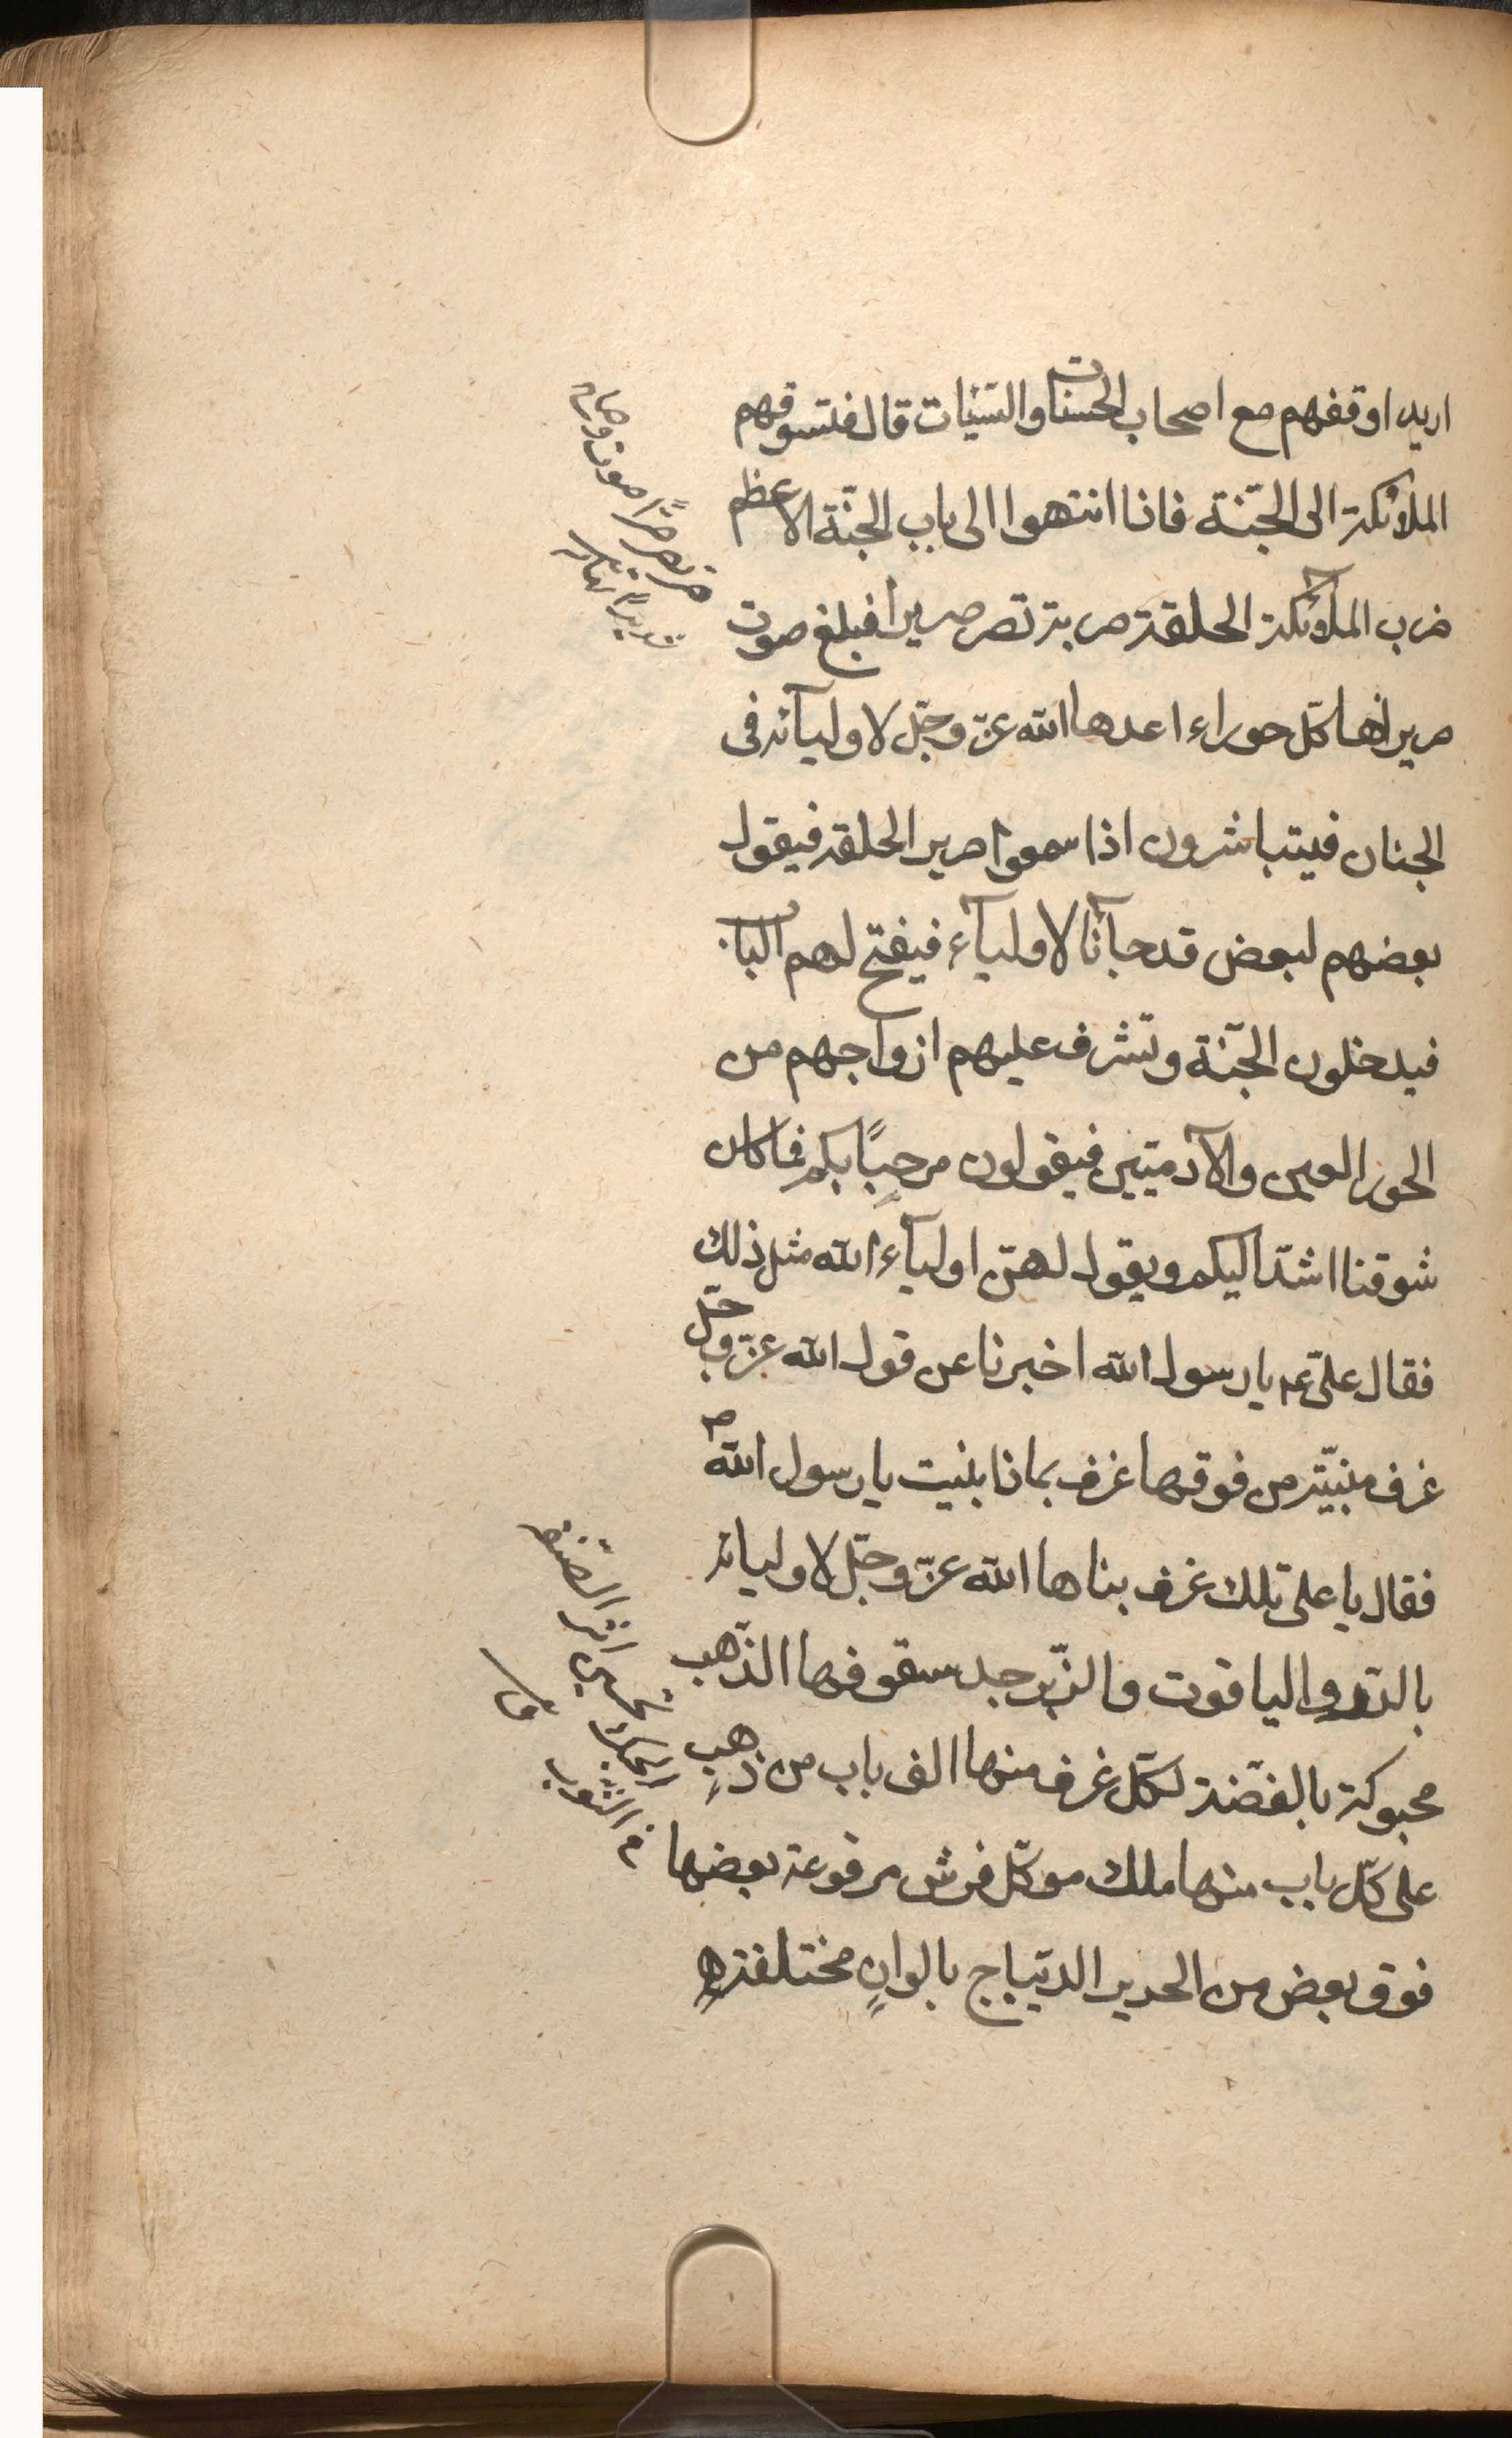 اريد اوقفهم مع اصحاب الحسنات والسّيّات قال فتسوقهم
الملائكة الى الجنّة فاذا انتهوا الى باب الجنّة الاعظم
ضرب الملائكة الحلقة ضربة تصر صريرا فبلغ صوت
صريرها كلّ حوراء اعدها الله عزّ وجلّ لاوليآئه فى
الجنان فيتباشرون اذا سمعوا صرير الحلقه فيقول
بعضهم لبعض قد جآئنا لاوليآء فيفتح لهم الباب
فيدخلون الجنّة وتشرف عليهم ازواجهم من
الحور العين والآدميّين فيقولون مرحبًا بكم فما كان
شوقنا اشدّ اليكم ويقول لهنّ اوليآء الله مثل ذلك
فقال علىّ عم يا رسول الله اخبرنا عن قول الله عزّ وجلّ
غرف مبنيّة من فوقها غرف بماذا بنيت يا رسول الله ص
فقال يا على تلك غرف بناها الله عزّ وجلّ لاوليائه
بالدّر والياقوت والزّبرجد سقوفها الذّهب
محبوكة بالفضّة لكلّ غرف منها الف باب من ذهبٍ
على كلّ باب منها ملك موكّل فرش مرفوعة بعضها
فوق بعض من الحرير الديّباج بالوانٍ مختلفة
صر يصر صرًّا صوت وصاح
شديدًا
الحبك تحسين اثر الصّنعة
فى الثّوب
ق